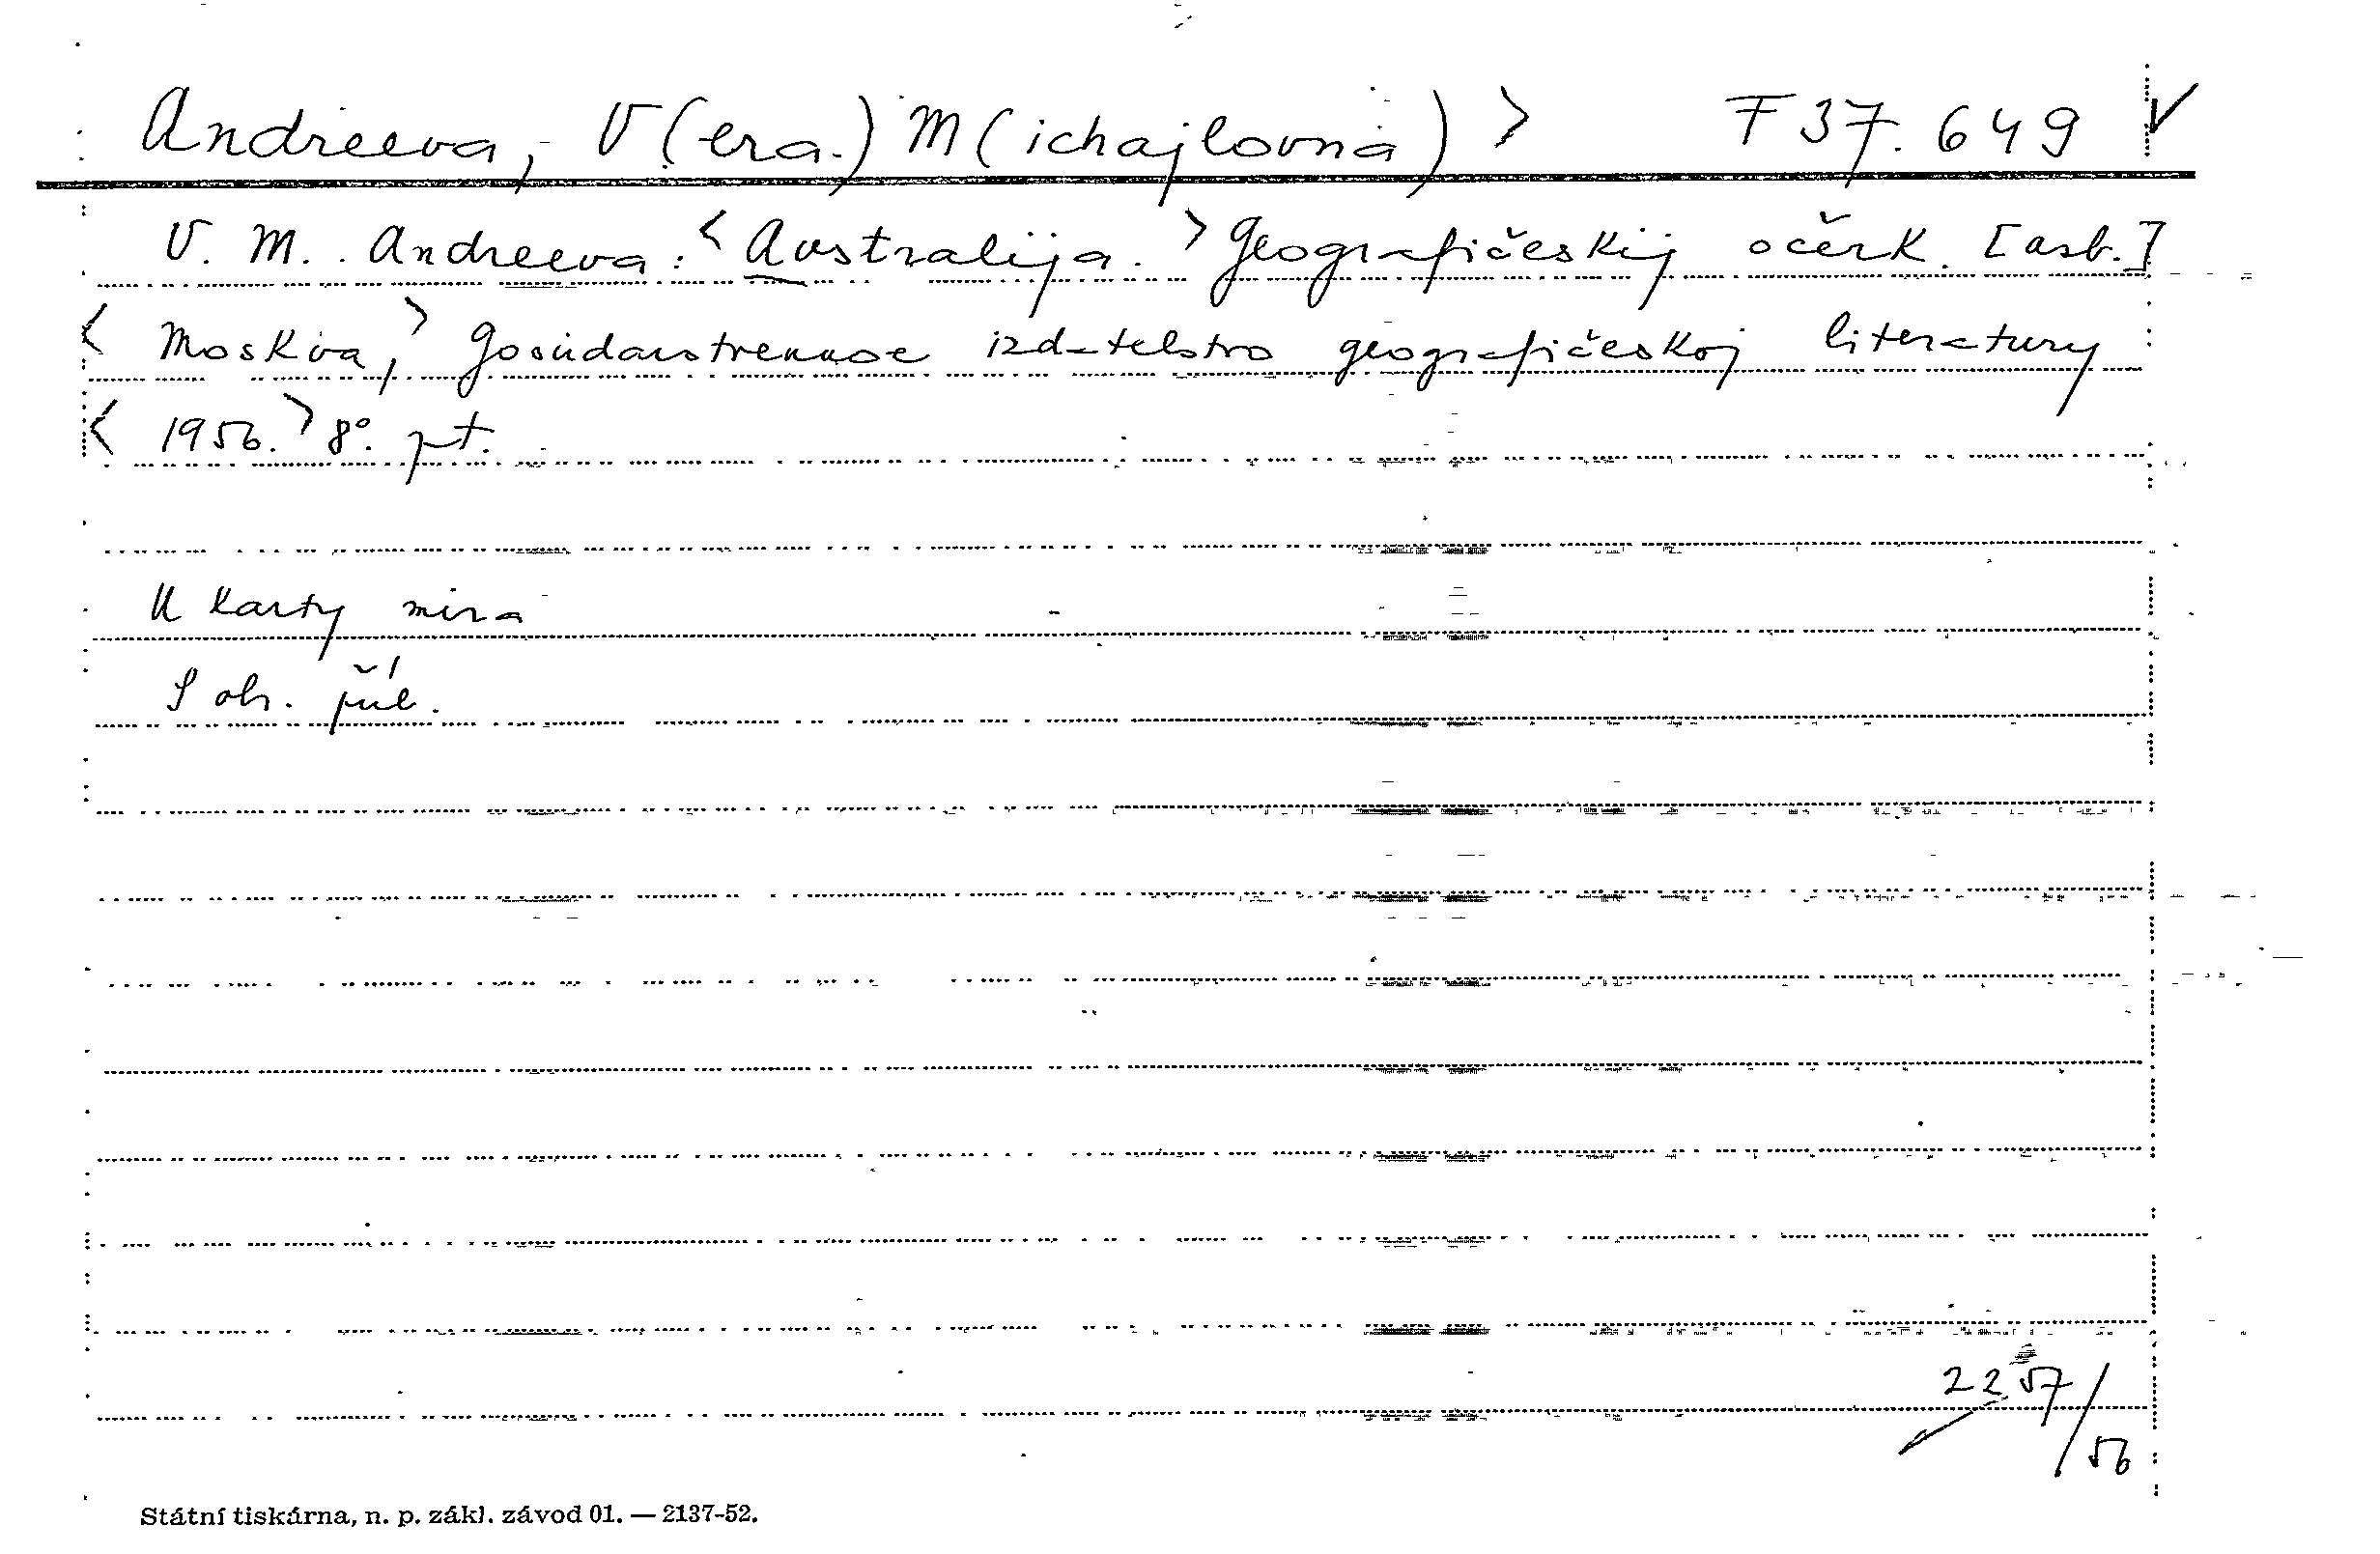 Andreeva, V(era.) M(ichajlovna) > F 37.649 V
V. M. Andreeva: <Avstralija.> Geografičeskij očerk. [asb.]
< Moskva,> Gosudarstvennoe izdatelstvo geografičeskoj literatury
< 1956.> 8°. pt.
U karty mira
S obr. příl.
2257/56
Státní tiskárna, n. p. zákl. závod 01. — 2137-52.